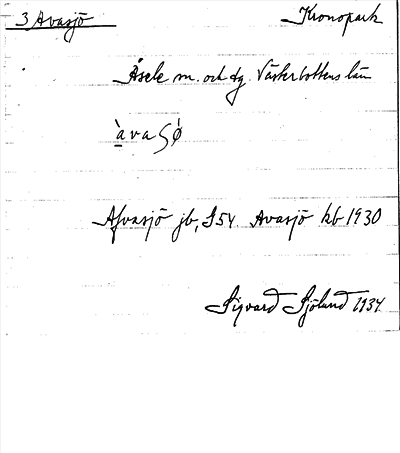 3 Avasjö Kronopark
Åsele sn. och tg. Västerbottens län
àvaʃǿ
Afvasjö jb, 154 Avasjö kb 1930
Sigvard Sjölund 1934